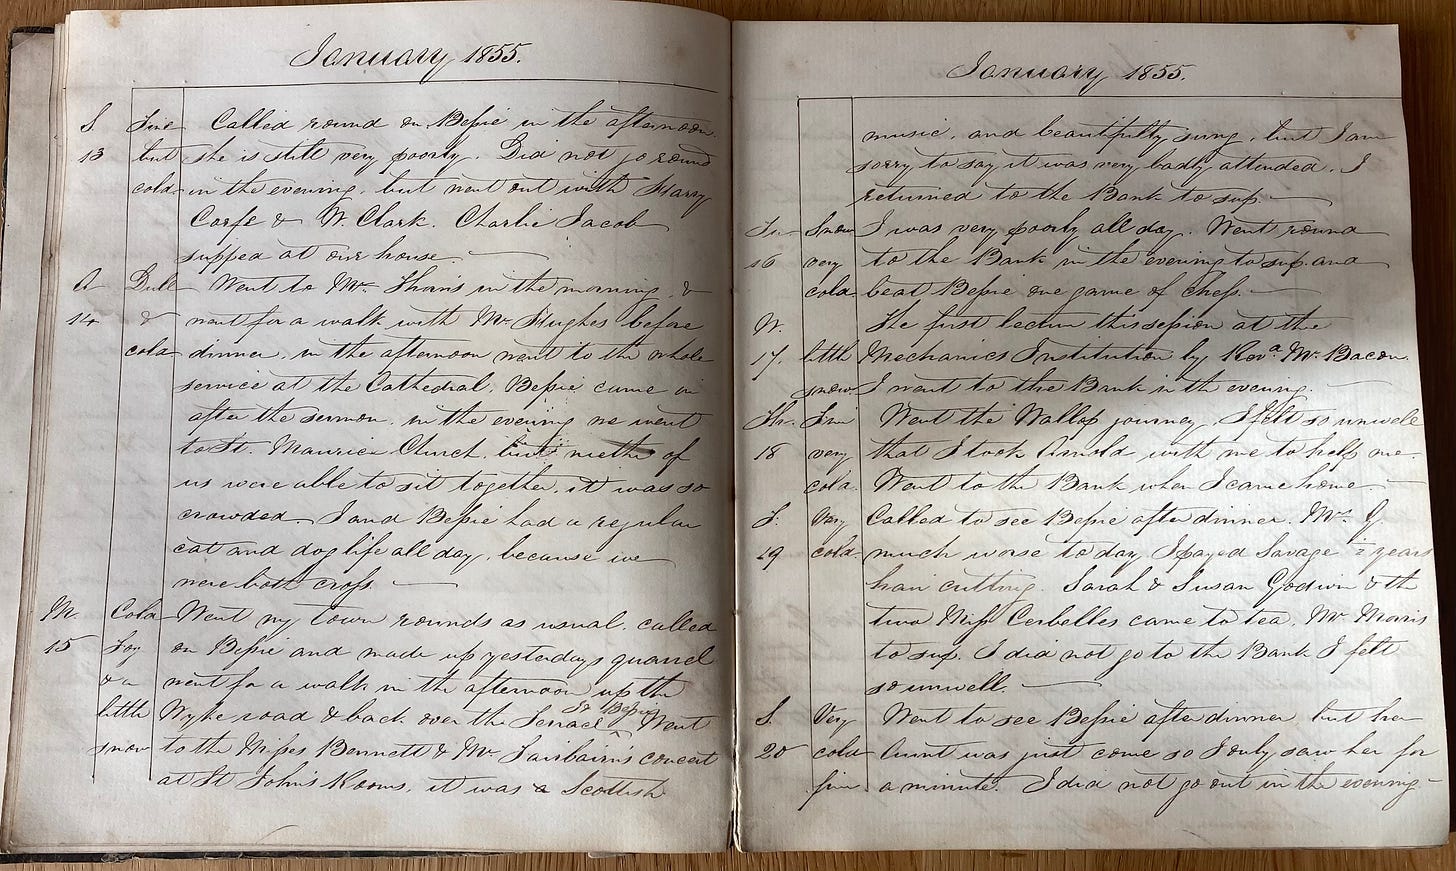 January 1855.
S. Fine Called round on Bessie in the afternoon.
13 but she is still very poorly. Did not go round
cold in the evening, but went out with Harry
Corfe & W. Clark. Charlie Jacob
supped at our house.
Dull Went to Mr. in the morning, &
14 & went for a walk with Mr. Hughes before
cold dinner, in the afternoon went to the whole
service at the Cathedral, Bessie came in
after the sermon, in the evening we went
to St. Maurice Church, but neither of
us were able to sit together, it was so
crowded. I and Bessie had a regular
cat and dog life all day, because we
were both cross.
M. Cold Went my town rounds as usual, called
15 Fog on Bessie and made up yesterdays quarrel
& a went for a walk in the afternoon up the
little Wyke road & back over the Terrace Went
snow to the Misses Bennett & Mr. Fairbairn's concert
at St John's Rooms, it was a Scottish
January 1855.
music, and beautifully sung, but I am
sorry to say it was very badly attended. I
returned to the Bank to sup.
Tu. Snow I was very poorly all day. Went round
16 very to the Bank in the evening to sup. and
cold. beat Bessie one game of chess.
W. The first lecture this session at the
17. little Mechanics Institution by Revd. Mr. Bacon.
snow I went to the Bank in the evening.
Th. Fine Went the Wallop journey. I felt so unwell
18 very that I took Arnold with me to help me.
cold. Went to the Bank when I came home
F. Very Called to see Bessie after dinner. Mr. G
19 cold much worse to day I payed Savage ½ years
hair cutting. Sarah & Susan Godwin & the
two Miss came to tea. Mr. Morris
to sup. I did not go to the Bank I felt
so unwell.
S. Very Went to see Bessie after dinner but her
20 cold Aunt was just come so I only saw her for
fine a minute. I did not go out in the evening